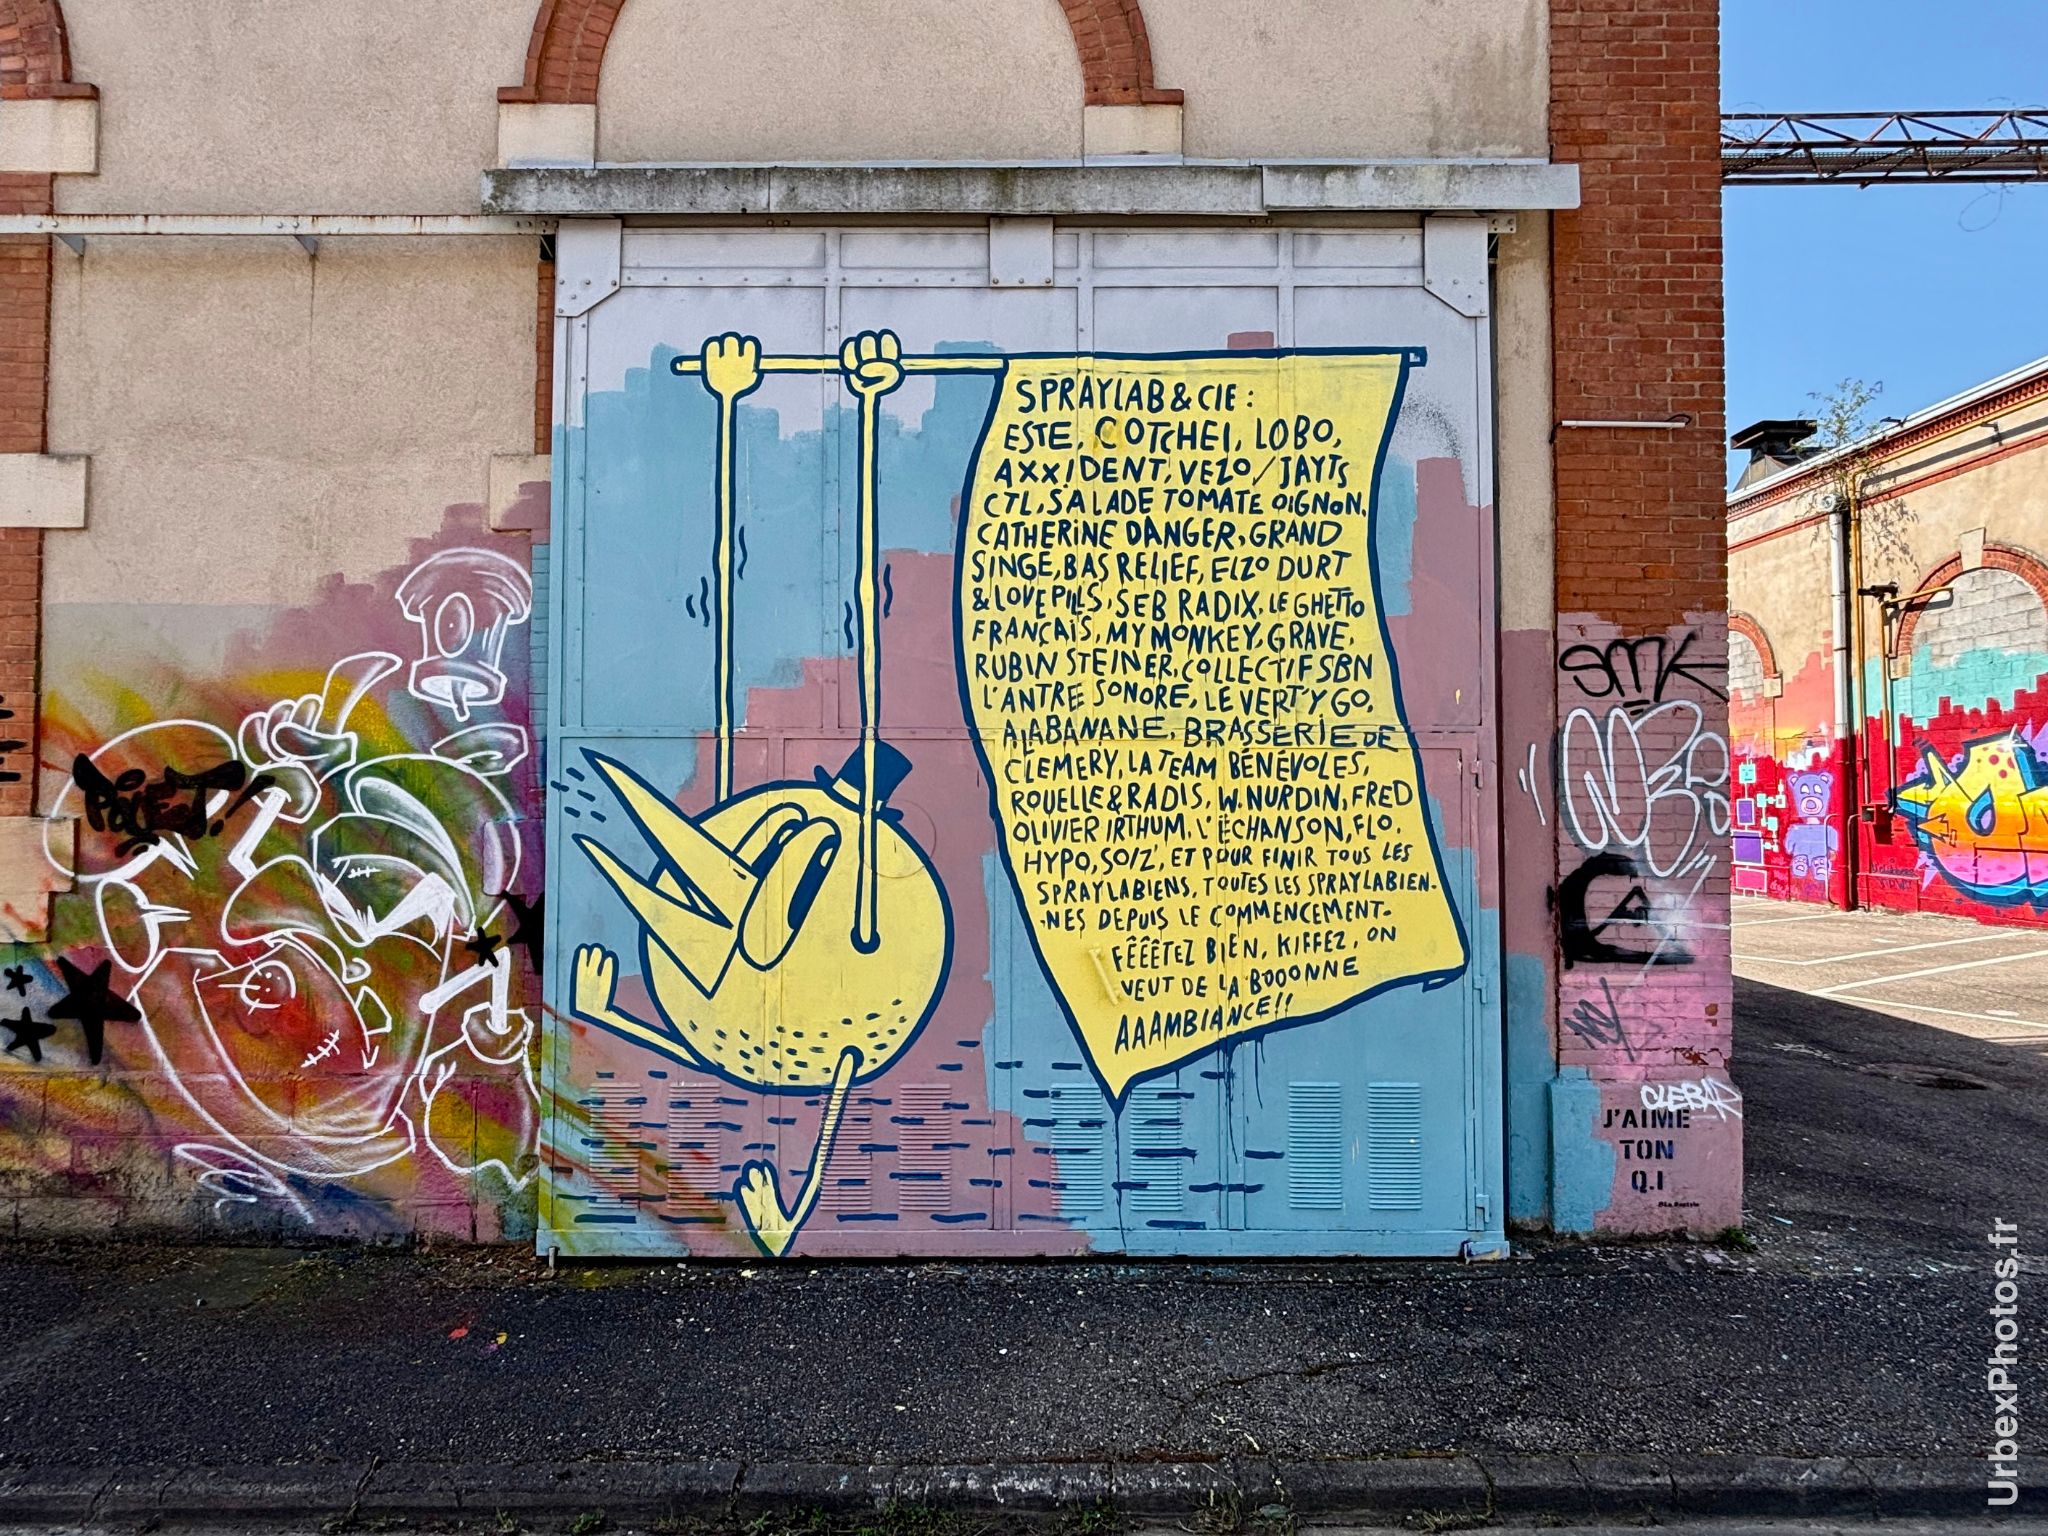 SPRAYLAB & CIE :
ESTE, COTCHEI, LOBO,
AXX!DENT, VEZO / JAYTS
CTL, SALADE TOMATE OIGNON,
CATHERINE DANGER, GRAND
SINGE, BAS RELIEF, ELZO DURT
& LOVEPILLS, SEB RADIX, LE GHETTO
FRANÇAIS, MY MONKEY, GRAVE,
RUBIN STEINER, COLLECTIF SBN
L'ANTRE SONORE, LE VERT'Y GO,
ALABANANE, BRASSERIE DE
CLEMERY, LA TEAM BÉNÉVOLES,
ROUELLE & RADIS, W. NURDIN, FRED
OLIVIER IRTHUM, L'ÉCHANSON, FLO,
HYPO, SO/Z', ET POUR FINIR TOUS LES
SPRAYLABIENS, TOUTES LES SPRAYLABIEN-
-NES DEPUIS LE COMMENCEMENT.
FÊÊÊTEZ BIEN, KIFFEZ, ON
VEUT DE LA BOOONNE
AAAMBIANCE!!
SMK
CLEBAR
J'AIME
TON
Q.I
UrbexPhotos.fr